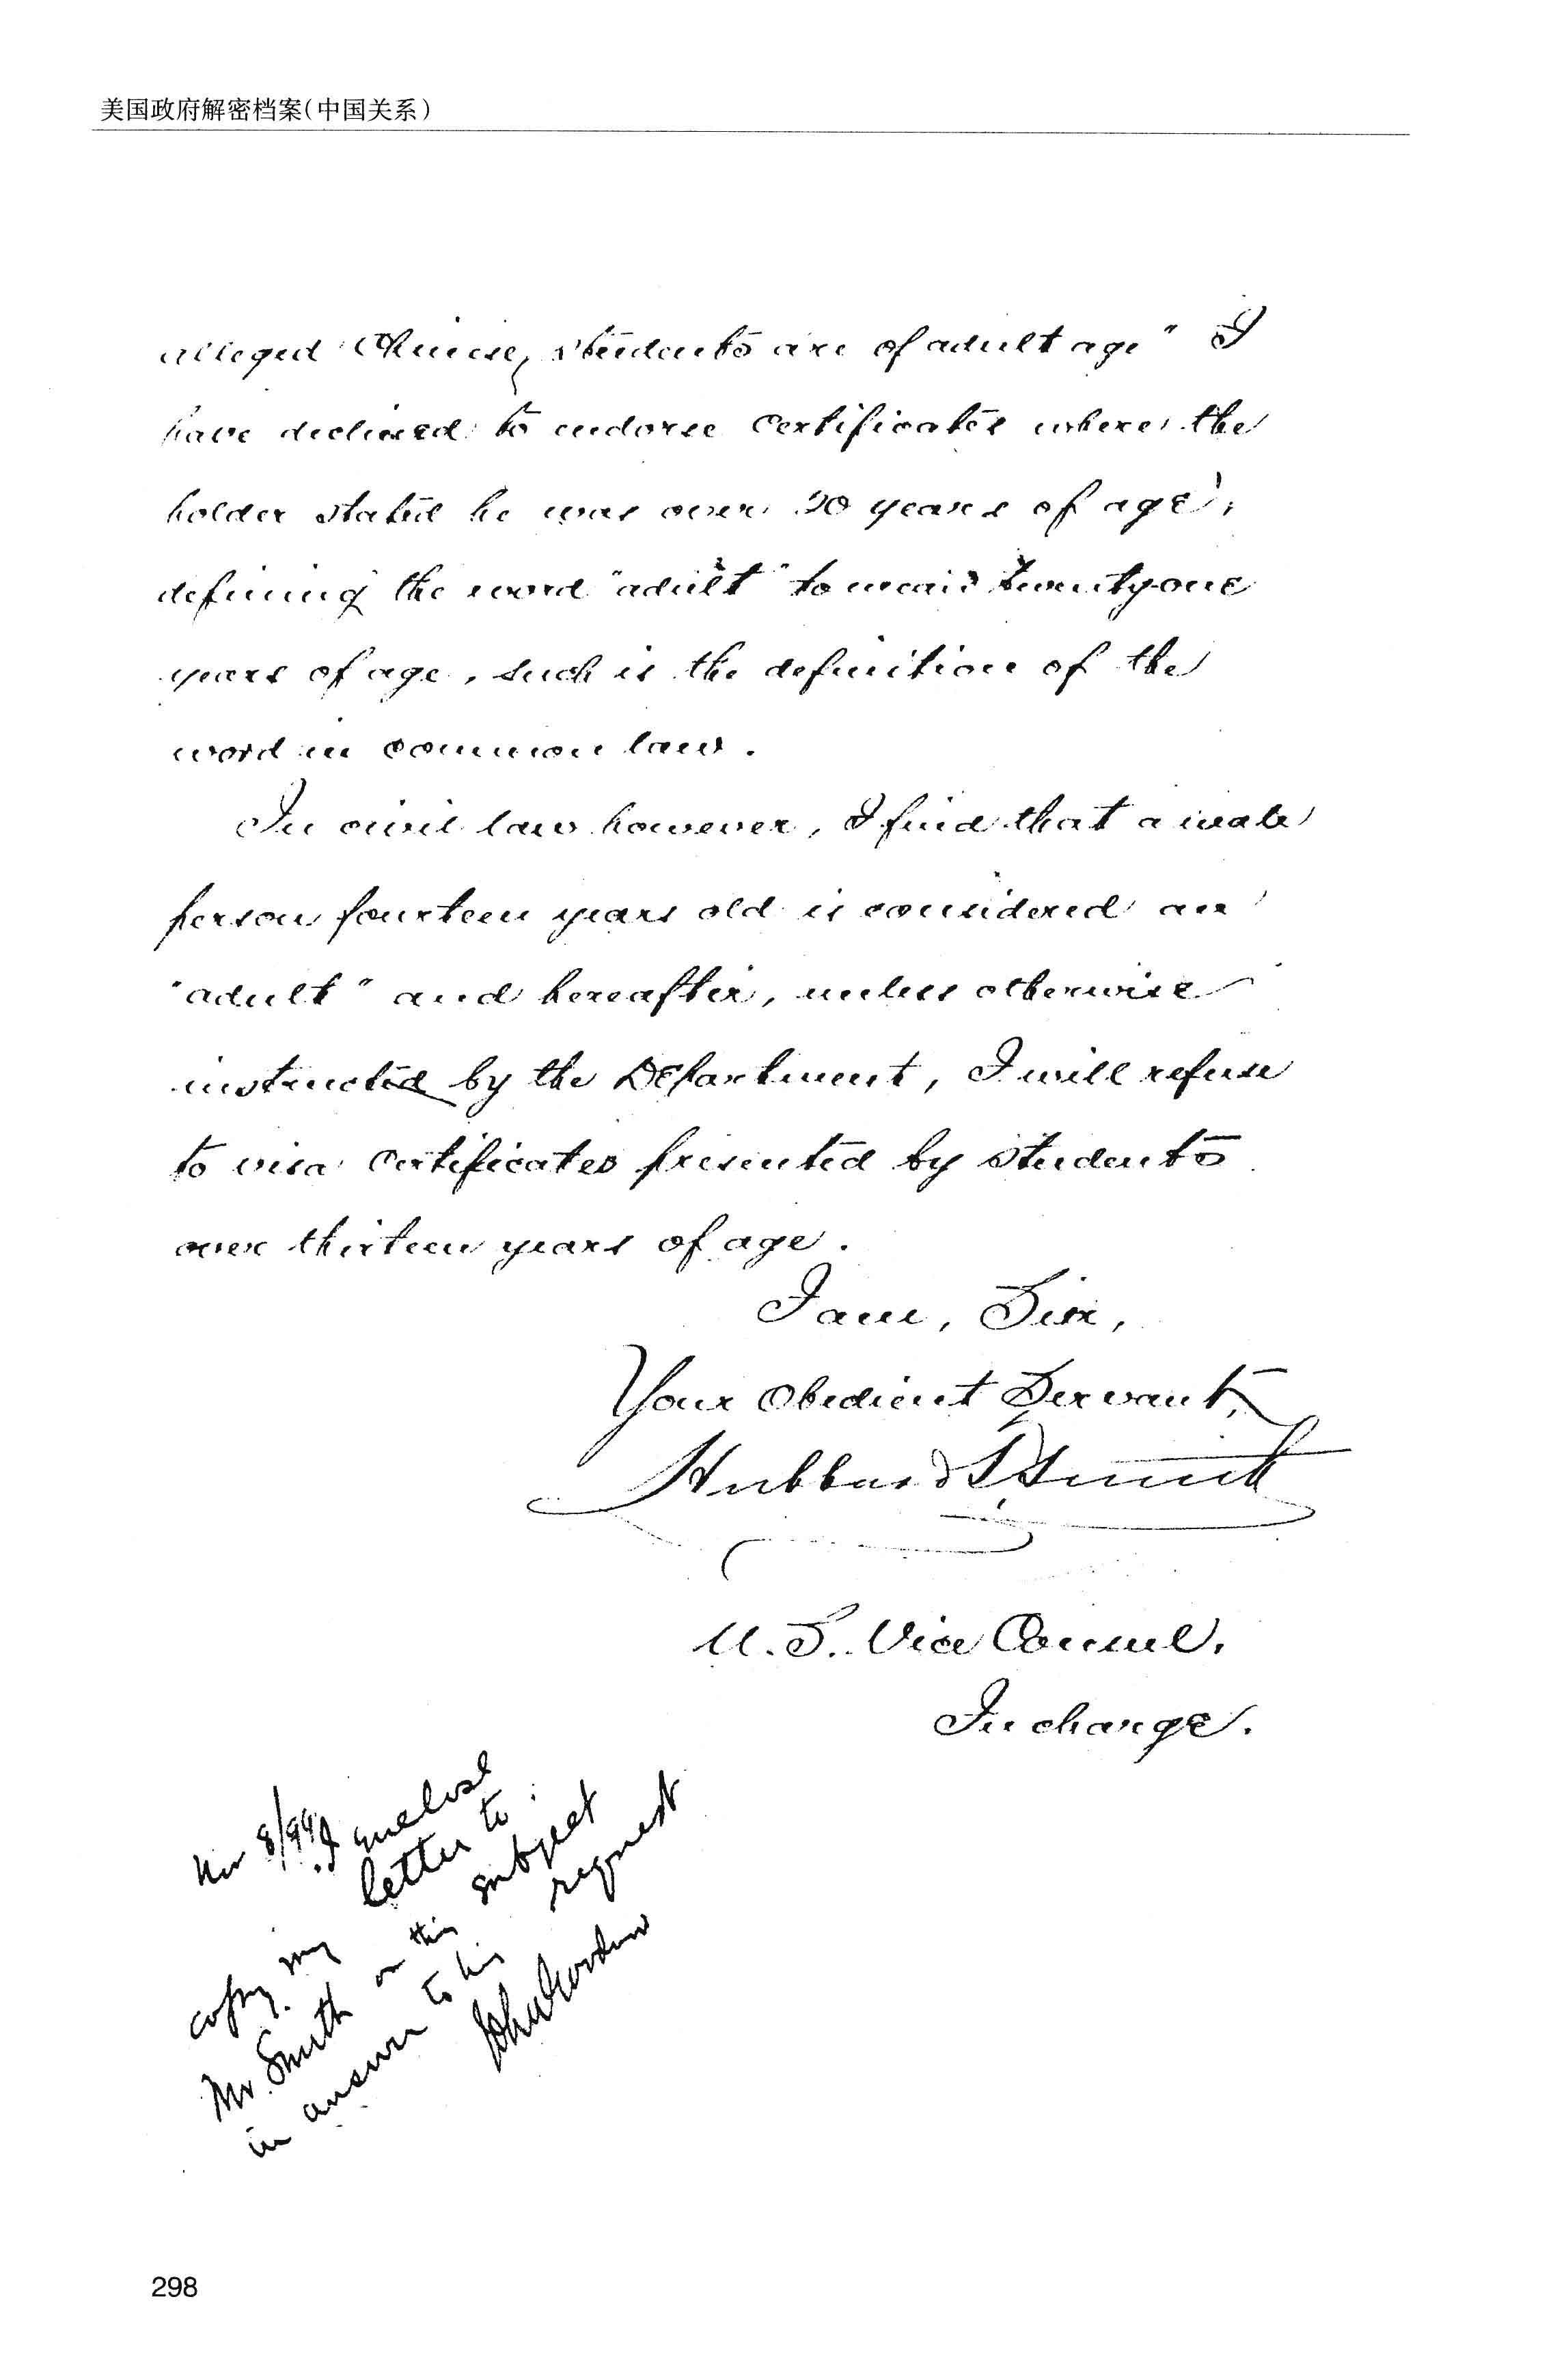 美国政府解密档案(中国关系)
alleged Chinese, students are of adult age" I
have declined to endorse certificates where the
holder stated he was over 20 years of age;
defining the word "adult" to mean twenty one
years of age, such is the definition of the
word in common law.
In civil law however, I find that a male
person fourteen years old is considered an
"adult" and hereafter, unless otherwise
instructed by the Department, I will refuse
to visa certificates presented by students
over thirteen years of age.
I am, Sir,
Your Obedient Servant,
Hubbard T. Smith
U.S. Vice Consul.
In charge.
Nov 8/99. I enclose
copy my letter to
Mr. Smith on this subject
in answer to his request
298